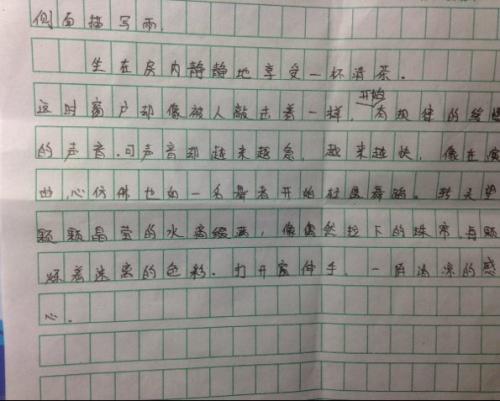 侧面描写雨
坐在房内静静地享受一杯清茶.
开始
这时窗户却像被人敲击着一样, 有规律的
的声音.可声音却越来越急, 越来越快, 像在
心仿佛也如一名舞者开始 舞蹈.
颗颗晶莹的水 , 像 拉下的珠帘,
烁着迷离的色彩.打开窗伸手, 一阵清凉的感
心.